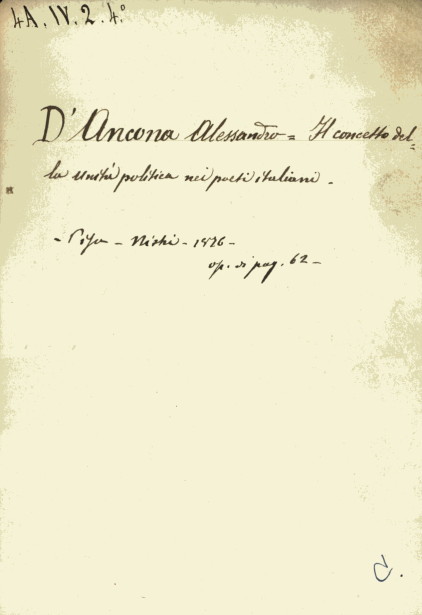 4A.IV.2.4.°
D'Ancona Alessandro = Il concetto del=
la unità politica nei poeti italiani -
- Pisa - Nistri - 1876 -
op. di pag. 62 -
C.